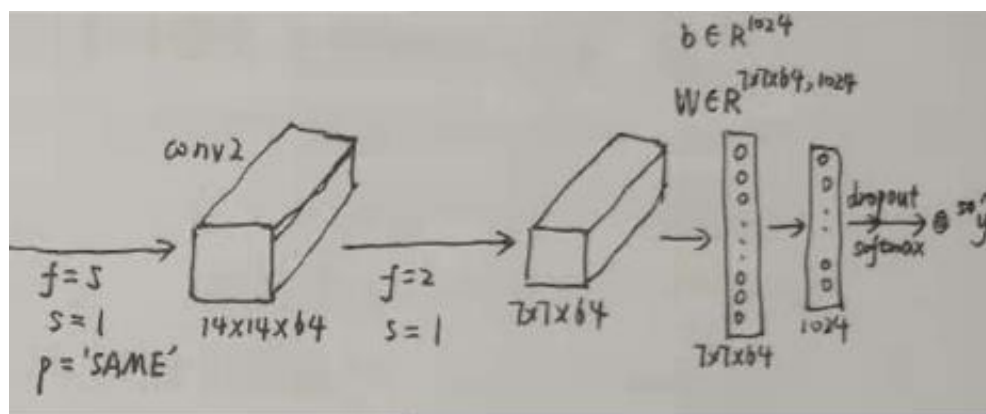 b ∈ R^1024
W ∈ R^7x7x64,1024
conv2
f=5
s=1
p='SAME'
14x14x64
f=2
s=1
7x7x64
7x7x64
1024
dropout
softmax